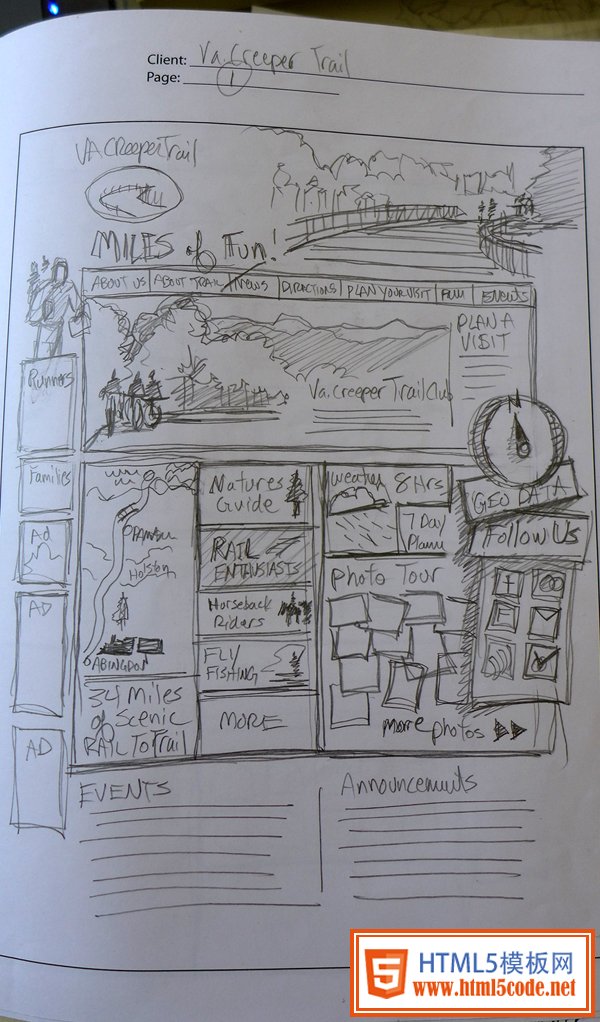 Client: Va. Creeper Trail
Page: 1
VA. CREEPER Trail
MILES of Fun!
ABOUT US
ABOUT TRAIL
NEWS
DIRECTIONS
PLAN YOUR VISIT
EVENTS
PLAN A
VISIT
Va. Creeper Trail Club
N
GEO DATA
Follow Us
Runners
Families
Ad
AD
AD
Holston
ABINGDON
34 Miles
of Scenic
RAIL TO Trail
Natures
Guide
RAIL
ENTHUSIASTS
Horseback
Riders
FLY
FISHING
MORE
weather 8 Hrs
7 Day
Photo Tour
more photos
EVENTS
Announcements
HTML5模板网
www.html5code.net